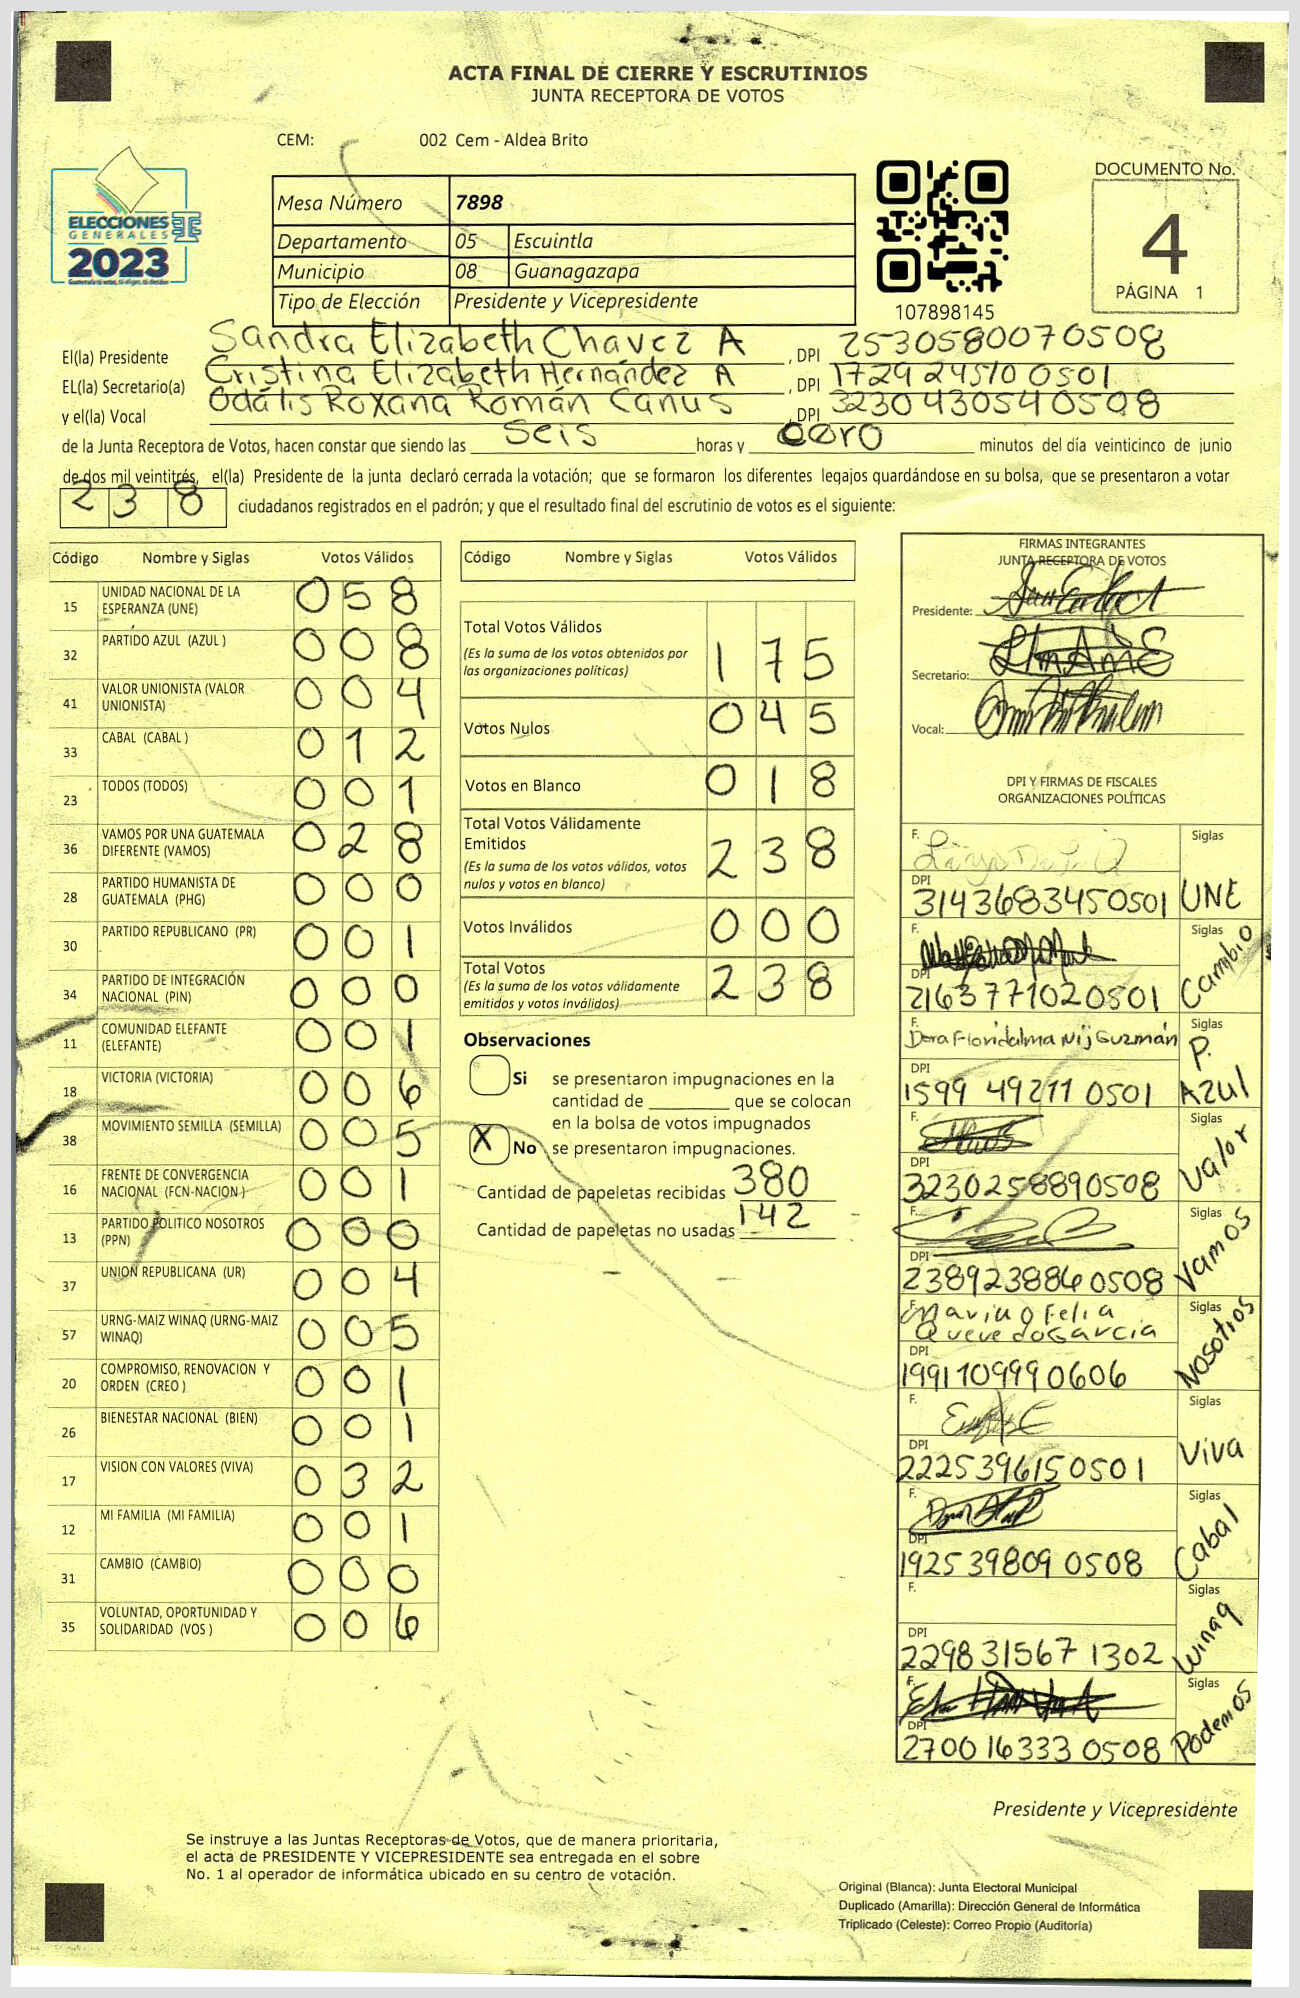 ACTA FINAL DE CIERRE Y ESCRUTINIOS
JUNTA RECEPTORA DE VOTOS
CEM: 002 Cem - Aldea Brito
ELECCIONES
GENERALES
2023
Mesa Número 7898
Departamento 05 Escuintla
Municipio 08 Guanagazapa
Tipo de Elección Presidente y Vicepresidente
107898145
DOCUMENTO No.
4
PÁGINA 1
El(la) Presidente Sandra Elizabeth Chávez A , DPI 2530580070508
EL(la) Secretario(a) Cristina Elizabeth Hernández A , DPI 1729 24510 0501
y el(la) Vocal Odalis Roxana Román Canus , DPI 3230430540508
de la Junta Receptora de Votos, hacen constar que siendo las seis horas y cero minutos del día veinticinco de junio
de dos mil veintitrés, el(la) Presidente de la junta declaró cerrada la votación; que se formaron los diferentes legajos guardándose en su bolsa, que se presentaron a votar
238 ciudadanos registrados en el padrón; y que el resultado final del escrutinio de votos es el siguiente:
Código Nombre y Siglas Votos Válidos
15 UNIDAD NACIONAL DE LA ESPERANZA (UNE) 058
32 PARTIDO AZUL (AZUL ) 008
41 VALOR UNIONISTA (VALOR UNIONISTA) 004
33 CABAL (CABAL ) 012
23 TODOS (TODOS) 001
36 VAMOS POR UNA GUATEMALA DIFERENTE (VAMOS) 028
28 PARTIDO HUMANISTA DE GUATEMALA (PHG) 000
30 PARTIDO REPUBLICANO (PR) 001
34 PARTIDO DE INTEGRACIÓN NACIONAL (PIN) 000
11 COMUNIDAD ELEFANTE (ELEFANTE) 001
18 VICTORIA (VICTORIA) 006
38 MOVIMIENTO SEMILLA (SEMILLA) 005
16 FRENTE DE CONVERGENCIA NACIONAL (FCN-NACION ) 001
13 PARTIDO POLITICO NOSOTROS (PPN) 000
37 UNION REPUBLICANA (UR) 004
57 URNG-MAIZ WINAQ (URNG-MAIZ WINAQ) 005
20 COMPROMISO, RENOVACION Y ORDEN (CREO ) 001
26 BIENESTAR NACIONAL (BIEN) 001
17 VISION CON VALORES (VIVA) 032
12 MI FAMILIA (MI FAMILIA) 001
31 CAMBIO (CAMBIO) 000
35 VOLUNTAD, OPORTUNIDAD Y SOLIDARIDAD (VOS ) 006
Código Nombre y Siglas Votos Válidos
Total Votos Válidos 175
(Es la suma de los votos obtenidos por
las organizaciones políticas)
Votos Nulos 045
Votos en Blanco 018
Total Votos Válidamente
Emitidos 238
(Es la suma de los votos válidos, votos
nulos y votos en blanco)
Votos Inválidos 000
Total Votos 238
(Es la suma de los votos válidamente
emitidos y votos inválidos)
Observaciones
Si se presentaron impugnaciones en la
cantidad de ________ que se colocan
en la bolsa de votos impugnados
X No se presentaron impugnaciones.
Cantidad de papeletas recibidas 380
Cantidad de papeletas no usadas 142
FIRMAS INTEGRANTES
JUNTA RECEPTORA DE VOTOS
Presidente:
Secretario:
Vocal:
DPI Y FIRMAS DE FISCALES
ORGANIZACIONES POLÍTICAS
F. Siglas
DPI 3143683450501 UNE
F. Siglas
DPI 2163771020501 Cambio
F. Dora Floridalma Nij Guzmán Siglas
DPI 1599 49211 0501 P. AZUL
F. Siglas
DPI 3230258890508 Valor
F. Siglas
DPI 2389238860508 Vamos
F. Marino Felia Quevedo García Siglas
DPI 1991109990606 Nosotros
F. Siglas
DPI 2225396150501 Viva
F. Siglas
DPI 1925398090508 Cabal
F. Siglas
DPI 2298 31567 1302 Winaq
F. Siglas
DPI 2700 16333 0508 Podemos
Presidente y Vicepresidente
Se instruye a las Juntas Receptoras de Votos, que de manera prioritaria,
el acta de PRESIDENTE Y VICEPRESIDENTE sea entregada en el sobre
No. 1 al operador de informática ubicado en su centro de votación.
Original (Blanca): Junta Electoral Municipal
Duplicado (Amarilla): Dirección General de Informática
Triplicado (Celeste): Correo Propio (Auditoría)